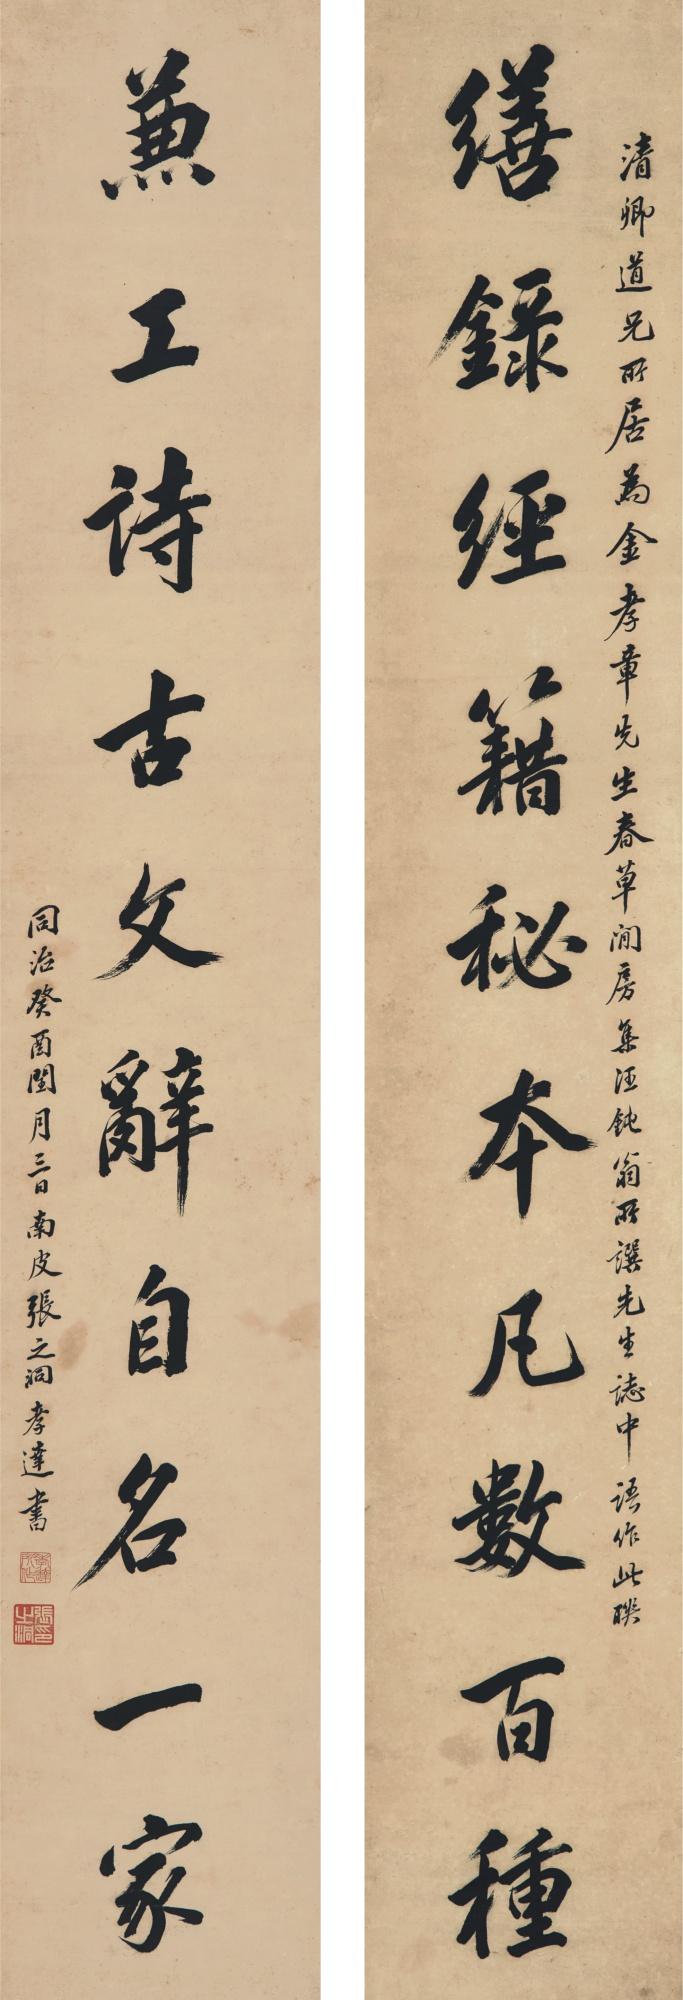 清卿道兄所居為金孝章先生春草閒房集汪鈍翁所譔先生誌中語作此聯
繕錄經籍秘本凡數百種
兼工詩古文辭自名一家
同治癸酉閏月三日南皮張之洞孝達書
張之洞印